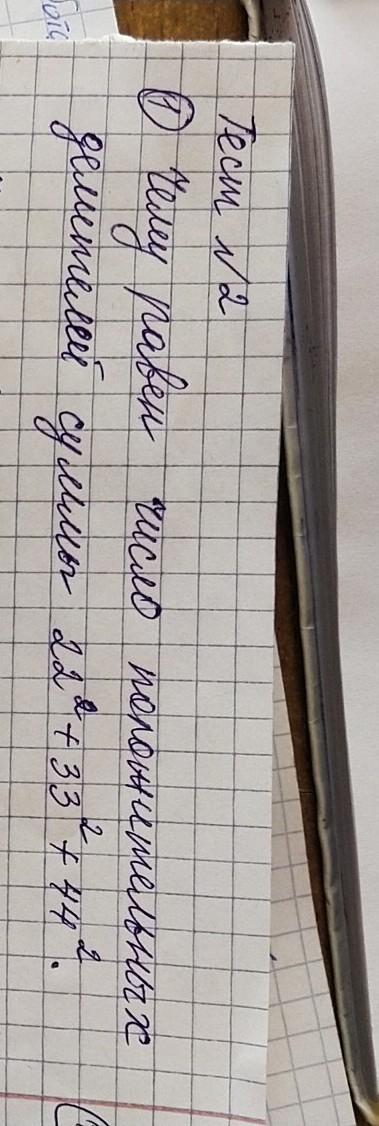 Тест №2
① Чему равен число положительных
делителей суммы 22² + 33² + 44².